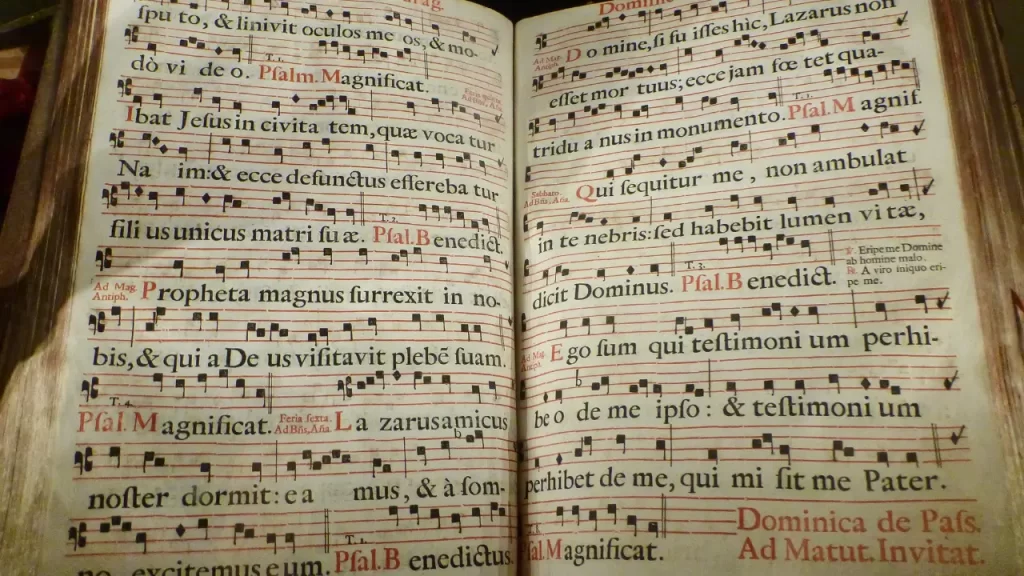 spu to, & linivit oculos me os, & mo-
T. 1.
dò vi de o. Psalm. Magnificat.
Ibat Jesus in civita tem, quæ voca tur
Na im: & ecce defunctus effereba tur
T. 2.
fili us unicus matri su æ. Psal. B enedict.
Ad Mag.
Antiph.
Propheta magnus surrexit in no-
bis, & qui a De us visitavit plebẽ suam.
T. 4.
Psal. M agnificat.
Feria sexta.
Ad Bñs, Aña.
La zarus amicus
noster dormit: e a mus, & à som-
no excitemus e um. Psal. B enedictus.
Domin
Ad Mag.
Antiph.
Do mine, si fu isses hìc, Lazarus non
esset mor tuus; ecce jam fœ tet qua-
T. 1.
tridu a nus in monumento. Psal. M agnif.
Sabbato.
Ad Bñs, Aña.
Qui sequitur me, non ambulat
in te nebris: sed habebit lumen vi tæ,
T. 3.
dicit Dominus. Psal. B enedict.
℣. Eripe me Domine
ab homine malo.
℟. A viro iniquo eri-
pe me.
Ad Mag.
Antiph.
Ego sum qui testimoni um perhi-
be o de me ipso: & testimoni um
perhibet de me, qui mi sit me Pater.
Psal. M agnificat.
Dominica de Pass.
Ad Matut. Invitat.